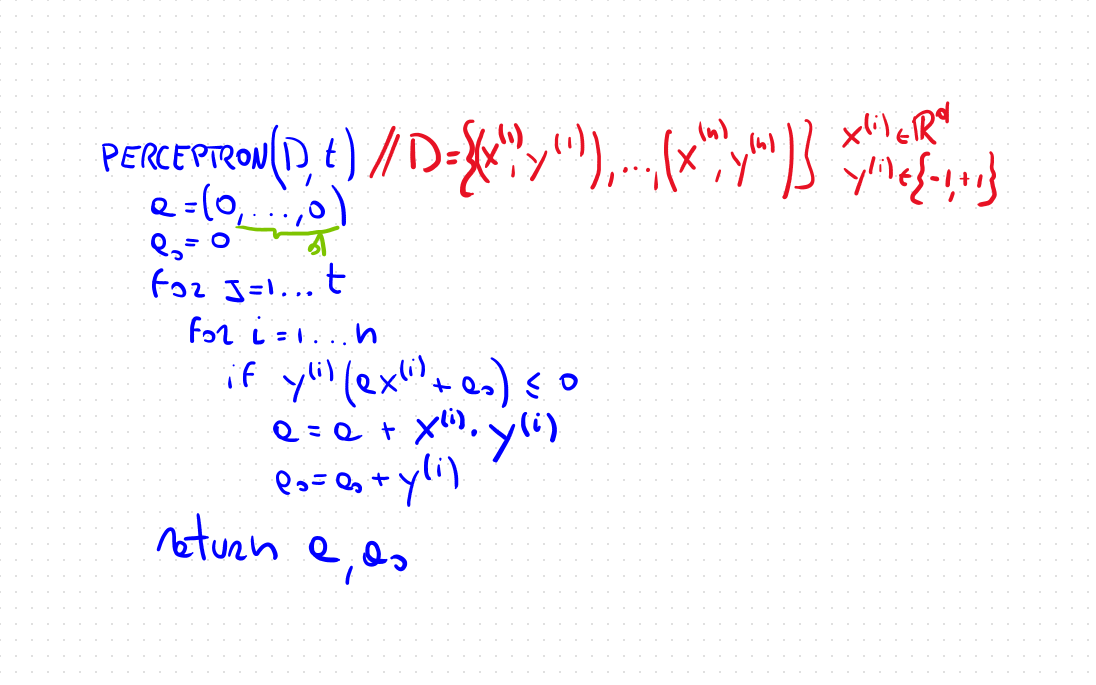 PERCEPTRON(D, t) // D={(x⁽¹⁾, y⁽¹⁾),...,(x⁽ⁿ⁾, y⁽ⁿ⁾)} x⁽ⁱ⁾∈ℝᵈ
y⁽ⁱ⁾∈{-1,+1}
θ=(0,...,0)
d
θ₀=0
for J=1...t
for i=1...n
if y⁽ⁱ⁾(θx⁽ⁱ⁾+θ₀) ≤ 0
θ = θ + x⁽ⁱ⁾·y⁽ⁱ⁾
θ₀=θ₀+y⁽ⁱ⁾
return θ,θ₀